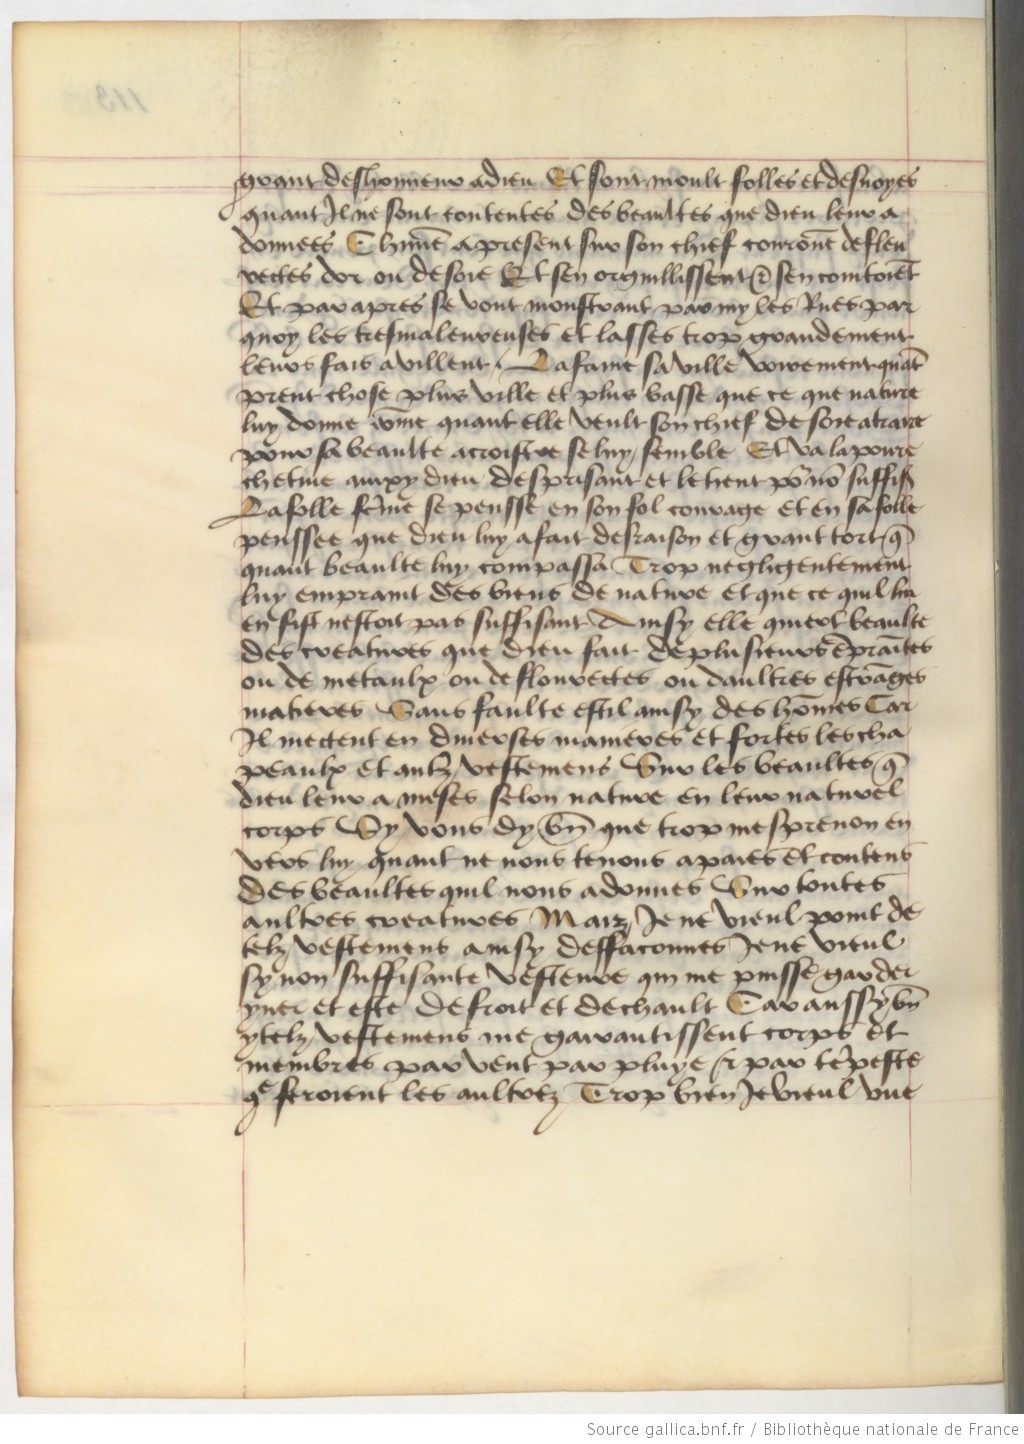 grant deshonneur a dieu Et sont moult folles et desuoyes
quant Il ne sont contentes des beaultes que dieu leur a
donnees Chūne a present sur son chief couronē de fleu
rectes dor ou de soie Et sen orguillissent & sen cointoiēt
Et par apres se vont monstrant parmy les Rues par
quoy les tresmaleureuses et lasses trop grandement
leurs fais avillent La fame sa ville vorement quāt
prent chose plus ville et plus basse que ce que nature
luy donne cōme quant elle veult son chief de soie atraire
pour sa beaulte acroistre se luy semble Et va la poure
chetiue auxy dieu desprisant et le tient pō nō suffis
La folle fēme se pensse en son fol courage et en sa folle
penssee que dieu luy a fait desraison et grant tort q̄
quant beaulte luy compassa Trop negligentement
luy empraint des biens de nature et que ce quil luy
en fist nestoit pas suffisant Ainsy elle quiert beaulte
des creatures que dieu fait de plusieurs ēpraītes
ou de metaulx ou de flourectes ou daultres estrāges
matieres Sans faulte est il ainsy des hōmes Car
Il mectent en diuerses manieres et fortes les cha
peaulx et autz vestemens Sur les beaultes q̄
dieu leur a mises selon nature en leur naturel
corps Sy vous dy bn̄ que trop mesprenon en
vers luy quant ne nous tenons a paies et contens
des beaultes quil nous a donnes Sur toutes
aultres creatures Maiz Je ne vieul point de
telz vestemens ainsy deffaconnes Je ne vieul
sy non suffisante vesteure qui me puisse garder
yuer et este de froit et de chault Car aussy bn̄
ytelz vestemens me garantissent corps et
membres par vent par pluye & par tēpeste
q̄ feroient les aultrez Trop bien Je vieul vne
113
Source gallica.bnf.fr / Bibliothèque nationale de France